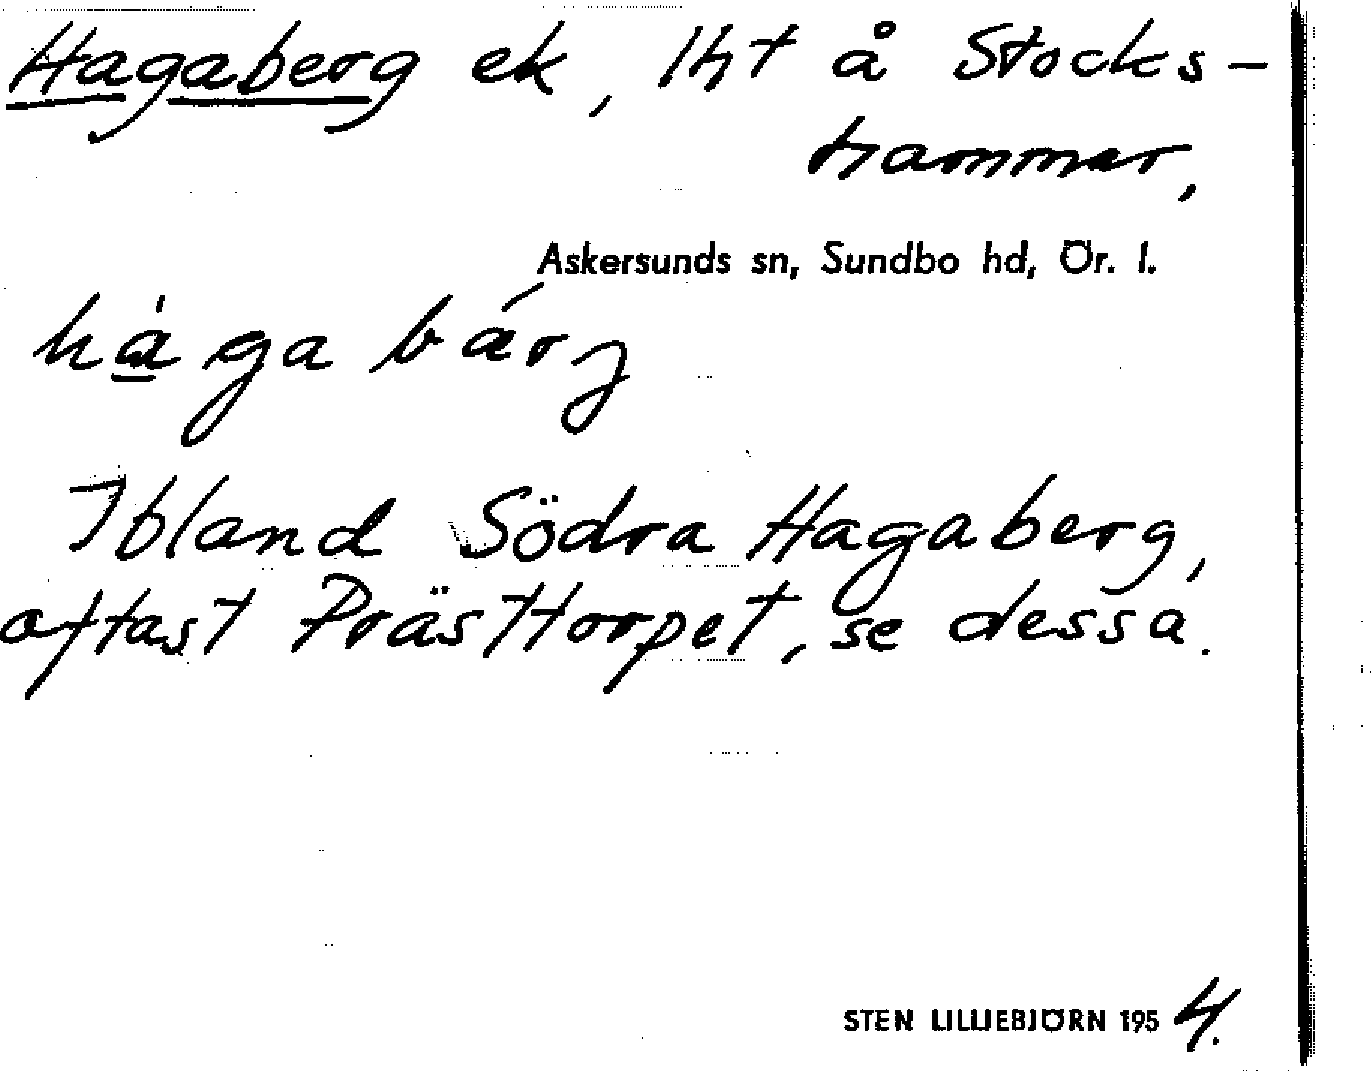 Hagaberg ek, lht å Stocks-
hammar,
Askersunds sn, Sundbo hd, Ör. l.
hàga bárʒ
Ibland Södra Hagaberg,
oftast Prästtorpet, se dessa.
STEN LILLIEBJÖRN 1954.